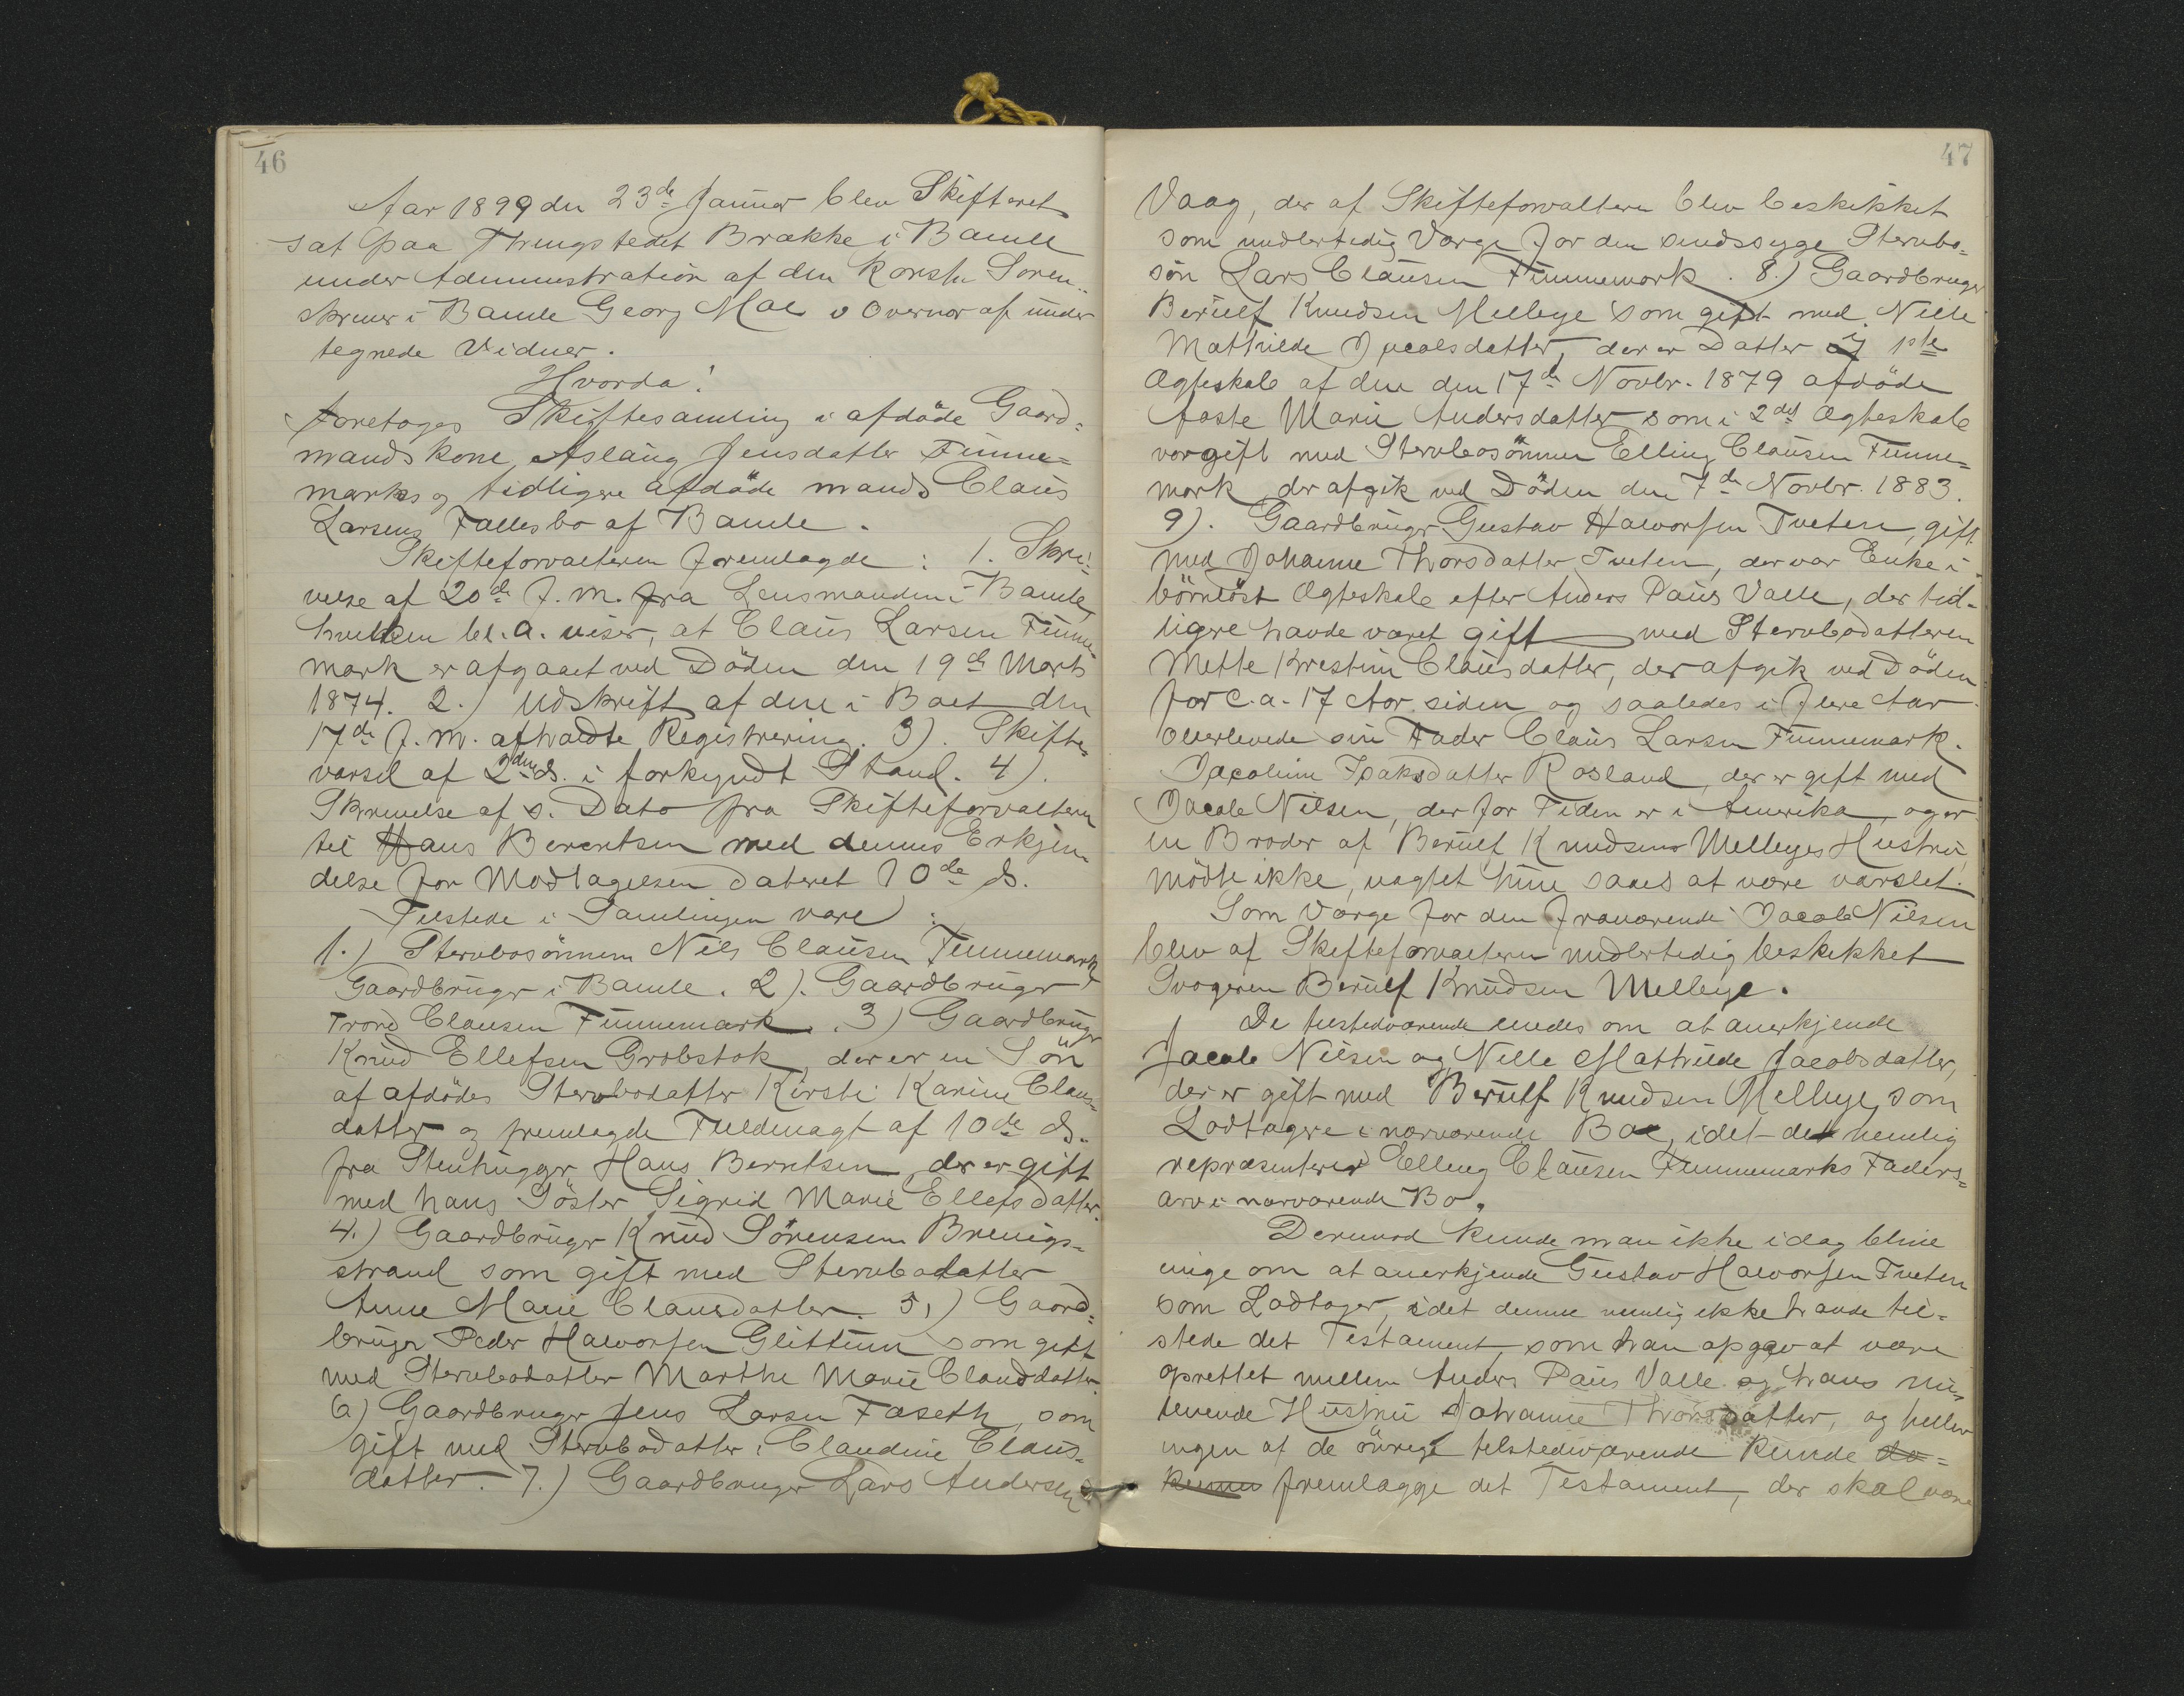 46
Aar 1899 den 23de Januar blev Skifteret
sat paa Thingstedet Brække i Bamle
under Administration af den konst. Soren-
skriver i Bamle Georg Moe i Overvær af under
tegnede Vidner.
Hvorda!
foretoges Skiftesamling i afdöde Gaard=
mandskone Aslaug Jensdatter Finne=
marks og tidligere afdöde mands Claus
Larsens Fællesbo af Bamle.
Skifteforvalteren fremlagde: 1. Skri=
velse af 20de f. m. fra Lensmanden i Bamle,
hvilken bl. a. viser, at Claus Larsen Finne-
mark er afgaaet ved Döden den 19de Marts
1874. 2.) Udskrift af den i Boet den
17de f. m. afholdte Registrering. 3). Skifte-
varsel af 2den ds. i forkyndt Stand. 4).
Skrivelse af s. Dato fra Skifteforvalteren
til Hans Berentsen med dennes Erkjen-
delse for Modtagelsen dateret 10de ds.
Tilstede i Samlingen vare:
1.) Stervbosönnen Nils Clausen Finnemark
Gaardbruger i Bamle. 2). Gaardbruger
Trond Clausen Finnemark. 3) Gaardbruger
Knud Ellefsen Grobstok, der er en Sön
af afdödes Stervbodatter Kirsti Karine Claus=
datter og fremlagde Fuldmagt af 10de ds.
fra Stenhugger Hans Berntsen, der er gift
med hans Söster Sigrid Marie Ellefsdatter.
4.) Gaardbruger Knud Sörensen Brevigs=
strand som gift med Stervbodatter
Anne Marie Clausdatter. 5.) Gaard=
bruger Peder Halvorsen Glittum som gift
med Stervbodatter Marthe Marie Clausdatter.
6) Gaardbruger Jens Larsen Faseth, som
gift med Stervbodatter Claudine Claus=
datter. 7.) Gaardbruger Lars Andersen
47
Vaag, der af Skifteforvalteren blev beskikket
som midlertidig Værge for den sindssyge Stervbo=
sön Lars Clausen Finnemark. 8.) Gaardbruger
Berulf Knudsen Melleye som gift med Nille
Mathilde Jacobsdatter, der er Datter i 1ste
Ægteskab af den den 17de Novbr. 1879 afdöde
Aaste Marie Andersdatter som i 2det Ægteskab
var gift med Stervbosönnen Elling Clausen Finne=
mark, der afgik ved Döden den 7de Novbr. 1883.
9). Gaardbruger Gustav Halvorsen Tveten, gift
med Johanne Thorsdatter Tveten, der var Enke i
börnlöst Ægteskab efter Anders Paus Valle, der tid-
ligere havde været gift med Stervbodatteren
Mette Kirstine Clausdatter, der afgik ved Döden
for c.a. 17 Aar siden og saaledes i flere Aar
overlevede sin Fader Claus Larsen Finnemark.
Jacobine Isaksdatter Rosland, der er gift med
Jacob Nilsen, der for Tiden er i Amerika, og er
en Broder af Berulf Knudsens Melleyes Hustru,
mödte ikke, uagtet hun saaes at være varslet.
Som Værge for den fraværende Jacob Nilsen
blev af Skifteforvalteren midlertidig beskikket
Svogeren Berulf Knudsen Melleye.
De tilstedværende enedes om at anerkjende
Jacob Nilsen og Nille Mathilde Jacobsdatter,
der er gift med Berulf Knudsen Melleye, som
Lodtagere i nærværende Bo, idet de nemlig
repræsenterer Elling Clausen Finnemarks Faders=
arv i nærværende Bo.
Derimod kunde man ikke idag blive
enige om at anerkjende Gustav Halvorsen Tveten
som Lodtager, idet denne nemlig ikke havde til=
stede det Testament, som han opgav at være
oprettet mellem Anders Paus Valle og hans nu-
levende Hustru Johanne Thorsdatter, og heller
ingen af de övrige tilstedeværende kunde do=
fremlægge det Testament, der skal være